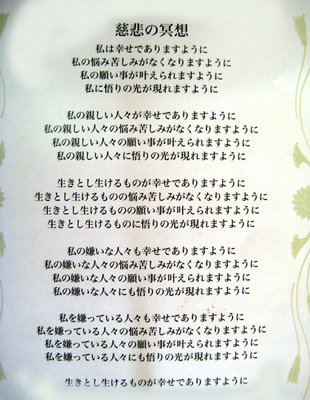 慈悲の冥想
私は幸せでありますように
私の悩み苦しみがなくなりますように
私の願い事が叶えられますように
私に悟りの光が現れますように
私の親しい人々が幸せでありますように
私の親しい人々の悩み苦しみがなくなりますように
私の親しい人々の願い事が叶えられますように
私の親しい人々に悟りの光が現れますように
生きとし生けるものが幸せでありますように
生きとし生けるものの悩み苦しみがなくなりますように
生きとし生けるものの願い事が叶えられますように
生きとし生けるものに悟りの光が現れますように
私の嫌いな人々も幸せでありますように
私の嫌いな人々の悩み苦しみがなくなりますように
私の嫌いな人々の願い事が叶えられますように
私の嫌いな人々にも悟りの光が現れますように
私を嫌っている人々も幸せでありますように
私を嫌っている人々の悩み苦しみがなくなりますように
私を嫌っている人々の願い事が叶えられますように
私を嫌っている人々にも悟りの光が現れますように
生きとし生けるものが幸せでありますように